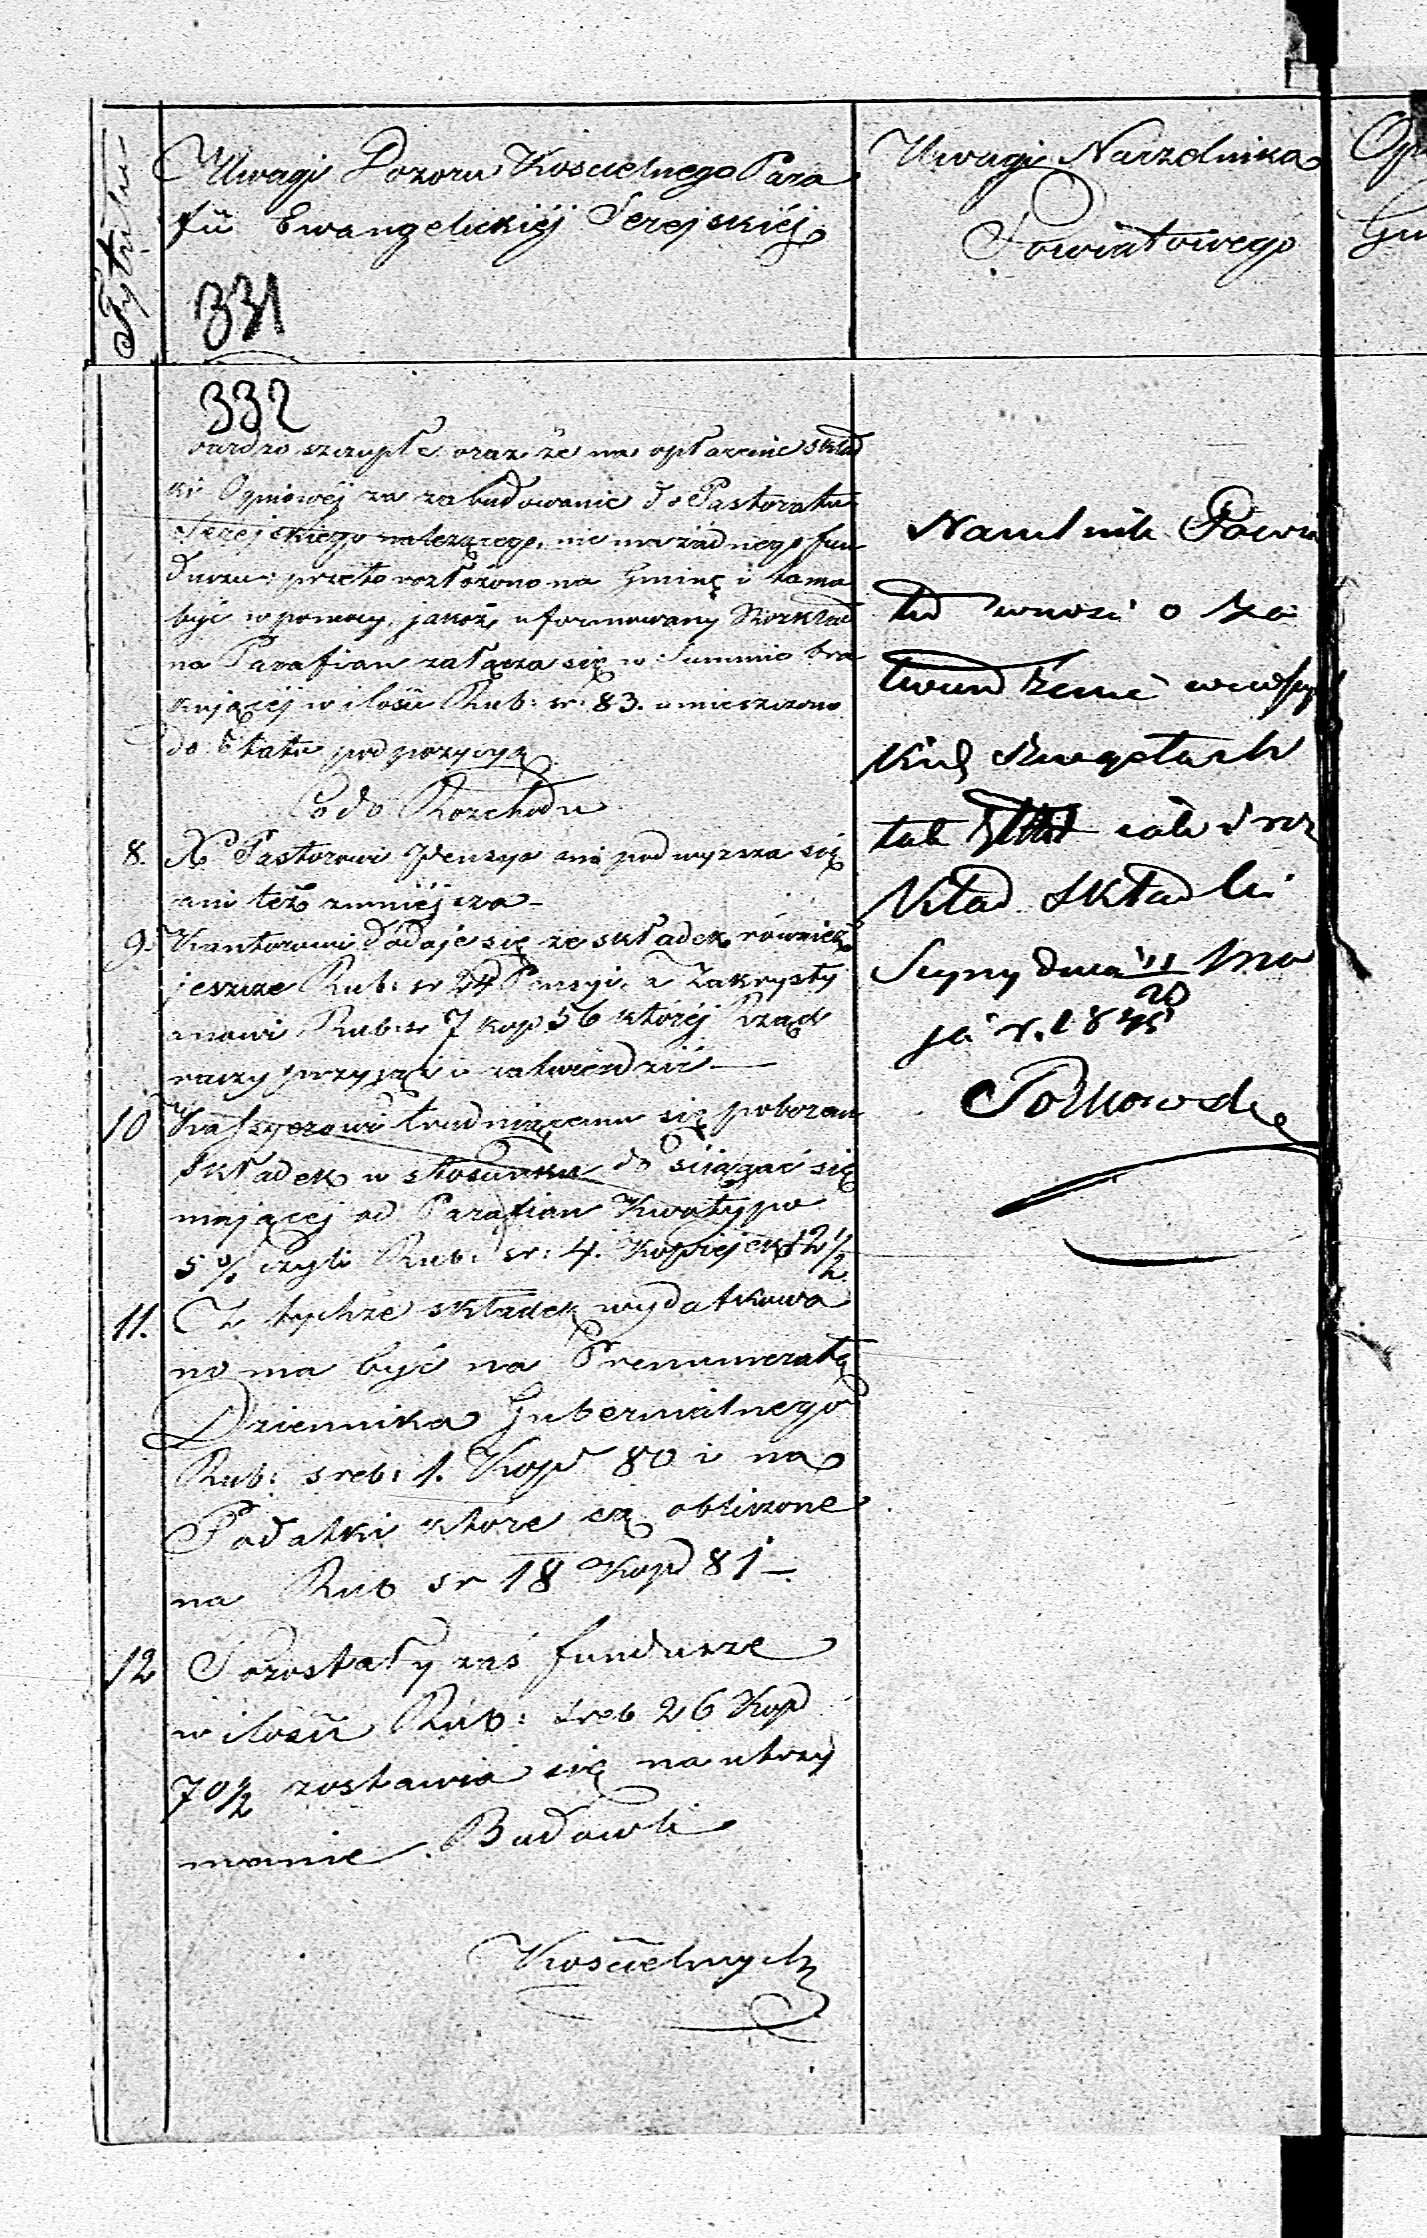 Tytułu
Uwagi Dozoru Koscielnego Para
fii Ewangelickiéj Serejskiéj
331
332
bardzo szczupłe oraz że na opłacenie skład
ki Ogniowéj za zabudowanie do Pastoratu
Serejskiego należącego, nie ma żadnego fun
duszu: przeto rozłożono na Gminę i ta ma
być w pomocy, jakoż uformowany Rozkład
na Parafian załącza się w Summie bra
kującéj w ilości Rub: sr: 83. umieszczono
do Etatu pod pozycyą
Co do Rozchodu
8. X Pastorowi Pensya ani podwyzsza się
ani też zmniéjsza –
9. Kantorowi dodaje się ze składek również
jeszcze Rub: sr 24 Pensyi, a Zakrysty
anowi Rub: sr 7 kop 56 któréj Rząd
raczy przyjąć i zatwierdzić —
10 Kassyerowi trudniącemu się poborem
składek w stosunku do ściągać się
mającej od Parafian Kwoty po
5 % czyli Rub: sr: 4. Kopiejek 12 ½
11. Z tychże składek wydatkowa
no ma być na Prenumeratę
Dziennika Gubernialnego
Rub: sreb: 1. Kop 80 i na
Podatki które są obliczone
na Rub sr 18 Kop 81 –.
12 Pozostały zaś fundusze
w ilości Rub: sreb 26 Kop
70½ zostawia się na utrzy
manie Budowli
Kościelnych
Uwagi Naczelnika
Powiatowego
Naczelnik Powia
tu wnosi o za
twierdzenie we wszyst
kich szczegółach
tak etat jako i roz
kład składki
Sejny dnia 11/20 Ma
ja r. 1845
Polkowski